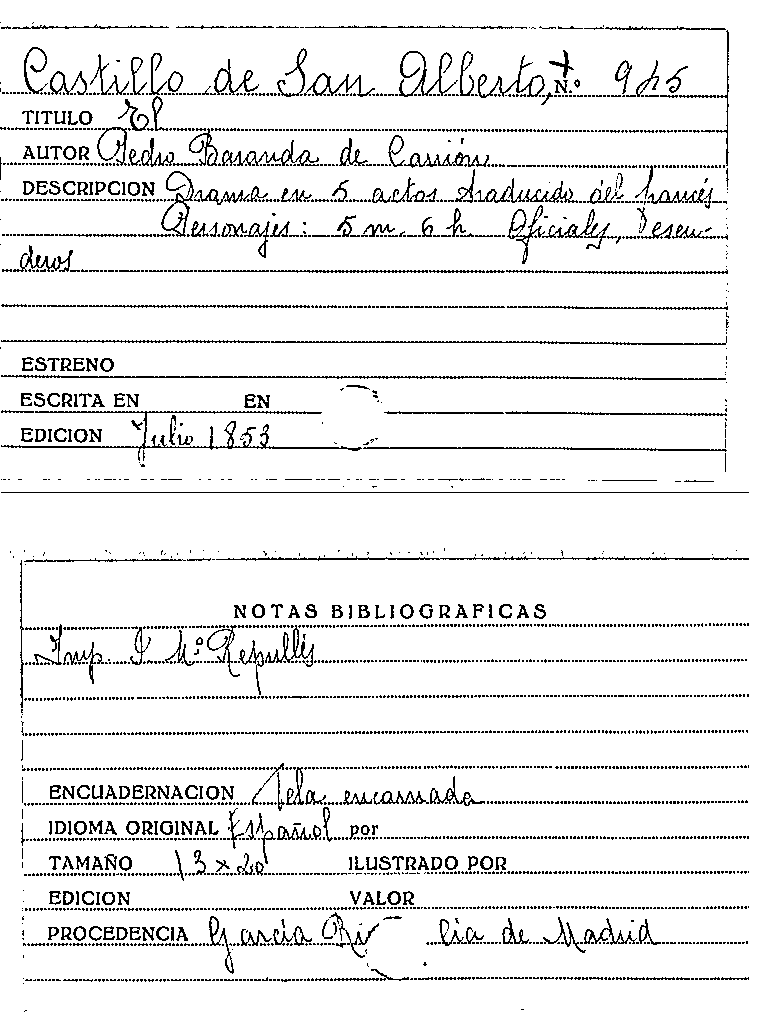 Castillo de San Alberto, N.º 945
TITULO El
AUTOR Pedro Baranda de Carrión
DESCRIPCION Drama en 5 actos traducido del francés
Personajes: 5 m. 6 h. Oficiales,
deros
ESTRENO
ESCRITA EN EN
EDICION Julio 1853
NOTAS BIBLIOGRAFICAS
Imp. J Mª Repullés
ENCUADERNACION Tela encarnada
IDIOMA ORIGINAL Español por
TAMAÑO 13 x 20 ILUSTRADO POR
EDICION VALOR
PROCEDENCIA García cia de Madrid